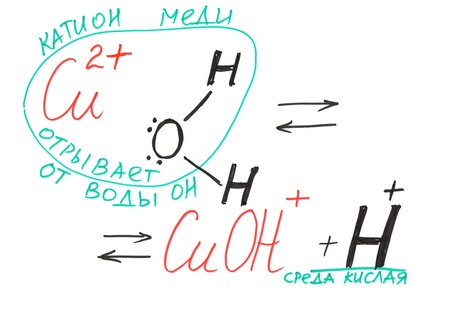 КАТИОН МЕДИ
Cu²⁺
H
O
H
⇌
ОТРЫВАЕТ
ОТ ВОДЫ OH
⇌ CuOH⁺ + H⁺
СРЕДА КИСЛАЯ